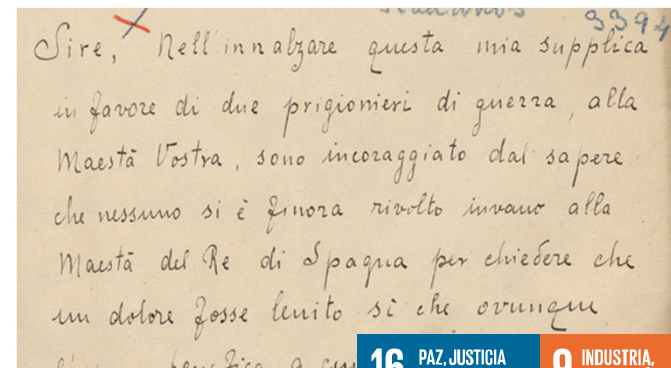 3394
Sire, Nell'innalzare questa mia supplica
in favore di due prigionieri di guerra, alla
Maestà Vostra, sono incoraggiato dal sapere
che nessuno si è finora rivolto invano alla
Maestà del Re di Spagna per chiedere che
un dolore fosse lenito sì che ovunque
16 PAZ, JUSTICIA
9 INDUSTRIA,